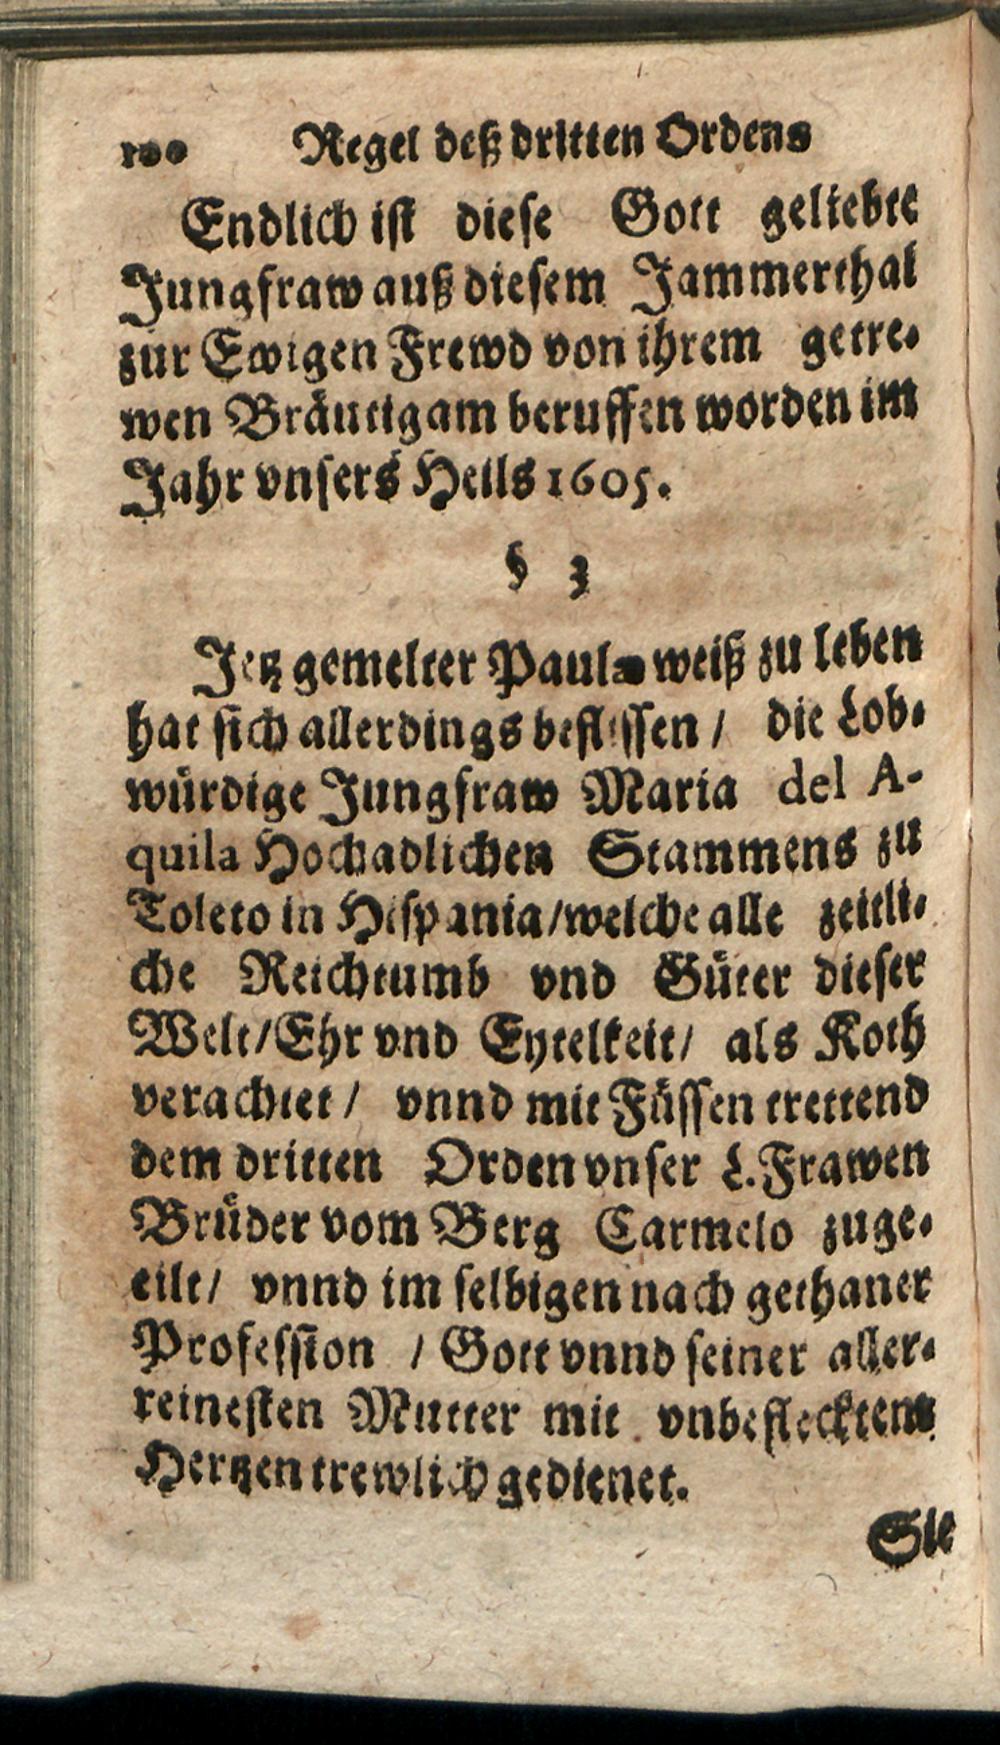 100 Regel deß dritten Ordens
Endlich ist diese Gott geliebte
Jungfraw auß diesem Jammerthal
zur Ewigen Frewd von ihrem getre-
wen Bräutigam beruffen worden im
Jahr vnsers Heils 1605.
§ 3
Jetz gemelter Paulæ weiß zu leben
hat sich allerdings beflissen / die Lob-
würdige Jungfraw Maria del A-
quila Hochadlichen Stammens zu
Toleto in Hispania / welche alle zeitli-
che Reichtumb vnd Güter dieser
Welt / Ehr vnd Eytelkeit / als Koth
verachtet / vnnd mit Füssen trettend
dem dritten Orden vnser L. Frawen
Brüder vom Berg Carmelo zuge-
eilt / vnnd im selbigen nach gethaner
Profession / Gott vnnd seiner aller-
reinesten Mutter mit vnbeflecktem
Hertzen trewlich gedienet.
Sie